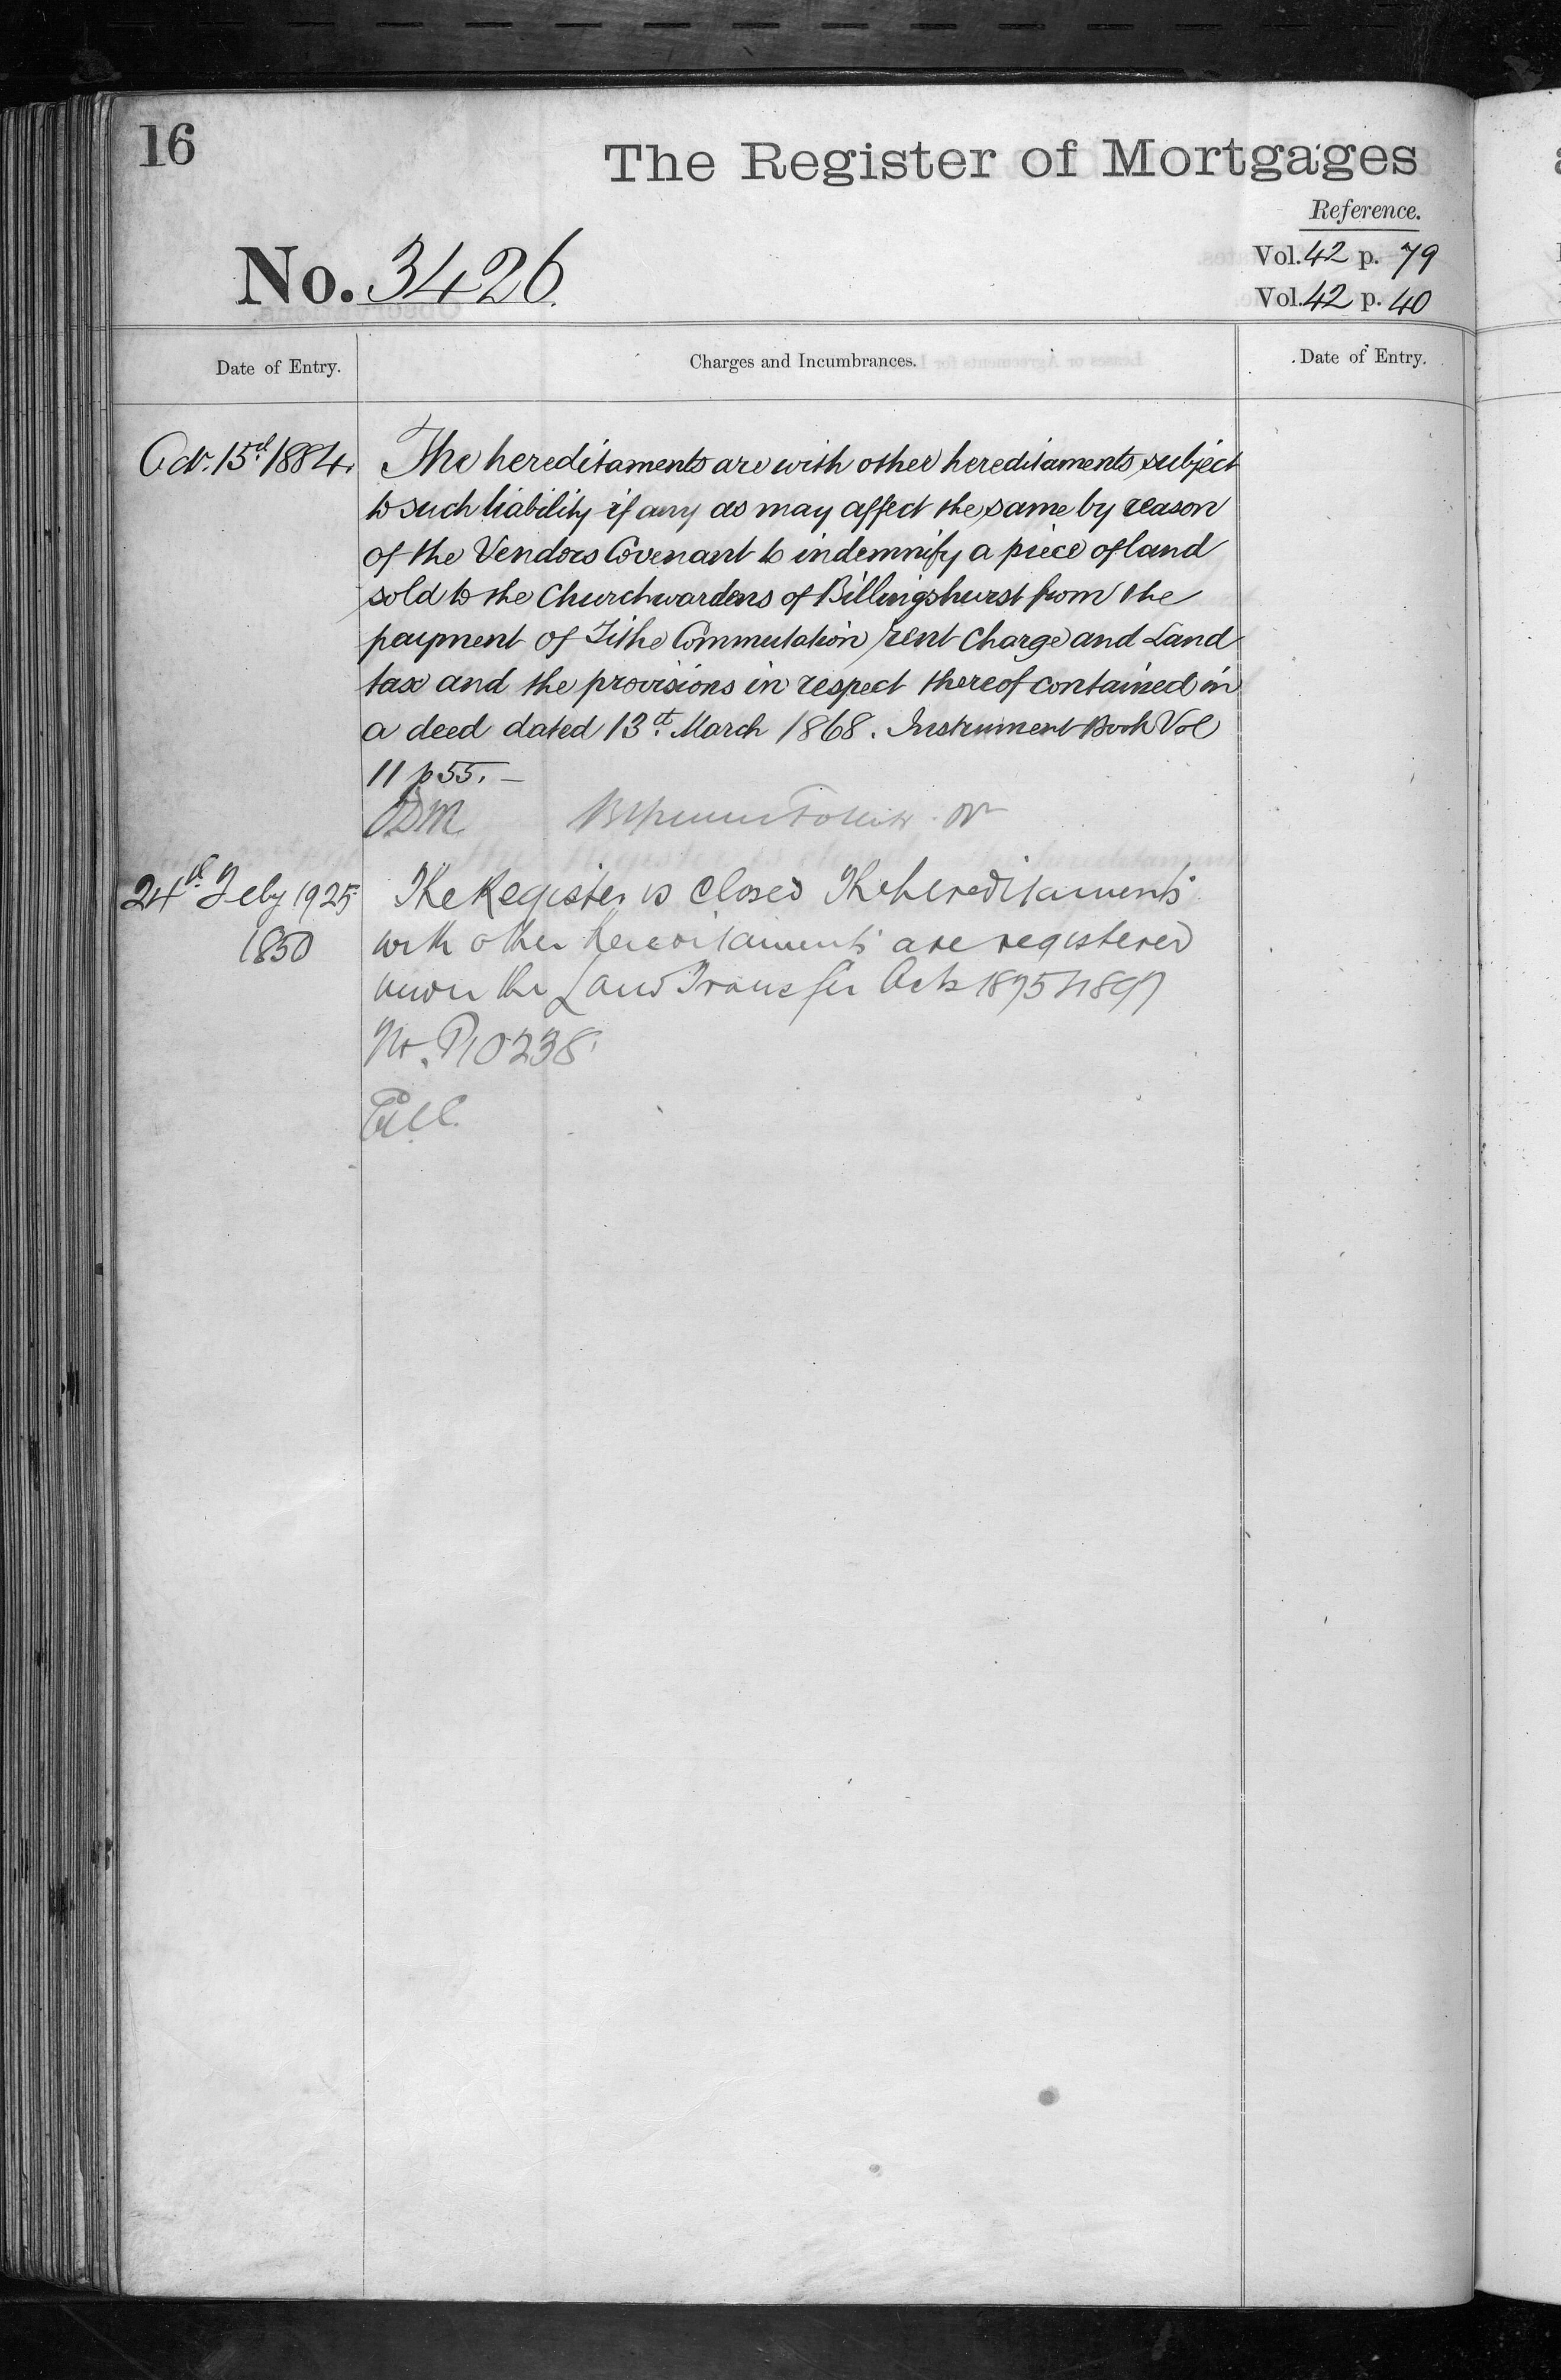 16
The Register of Mortgages
Reference.
Vol. 42 p. 79
No. 3426
Vol. 42 p. 40
Date of Entry.
Charges and Incumbrances.
Date of Entry.
Oct. 15th 1884.
The hereditaments are with other hereditaments subject
to such liability if any as may affect the same by reason
of the Vendors Covenant to indemnify a piece of land
sold to the Churchwardens of Billingshurst from the
payment of Tithe Commutation rent Charge and Land
tax and the provisions in respect thereof contained in
a deed dated 13th March 1868. Instrument Book Vol
11 p 55. –
24th Feby 1925
The Register is closed The hereditaments
1850
with other hereditaments are registered
under the Land Transfer Acts 1875 & 1897
No. P10238